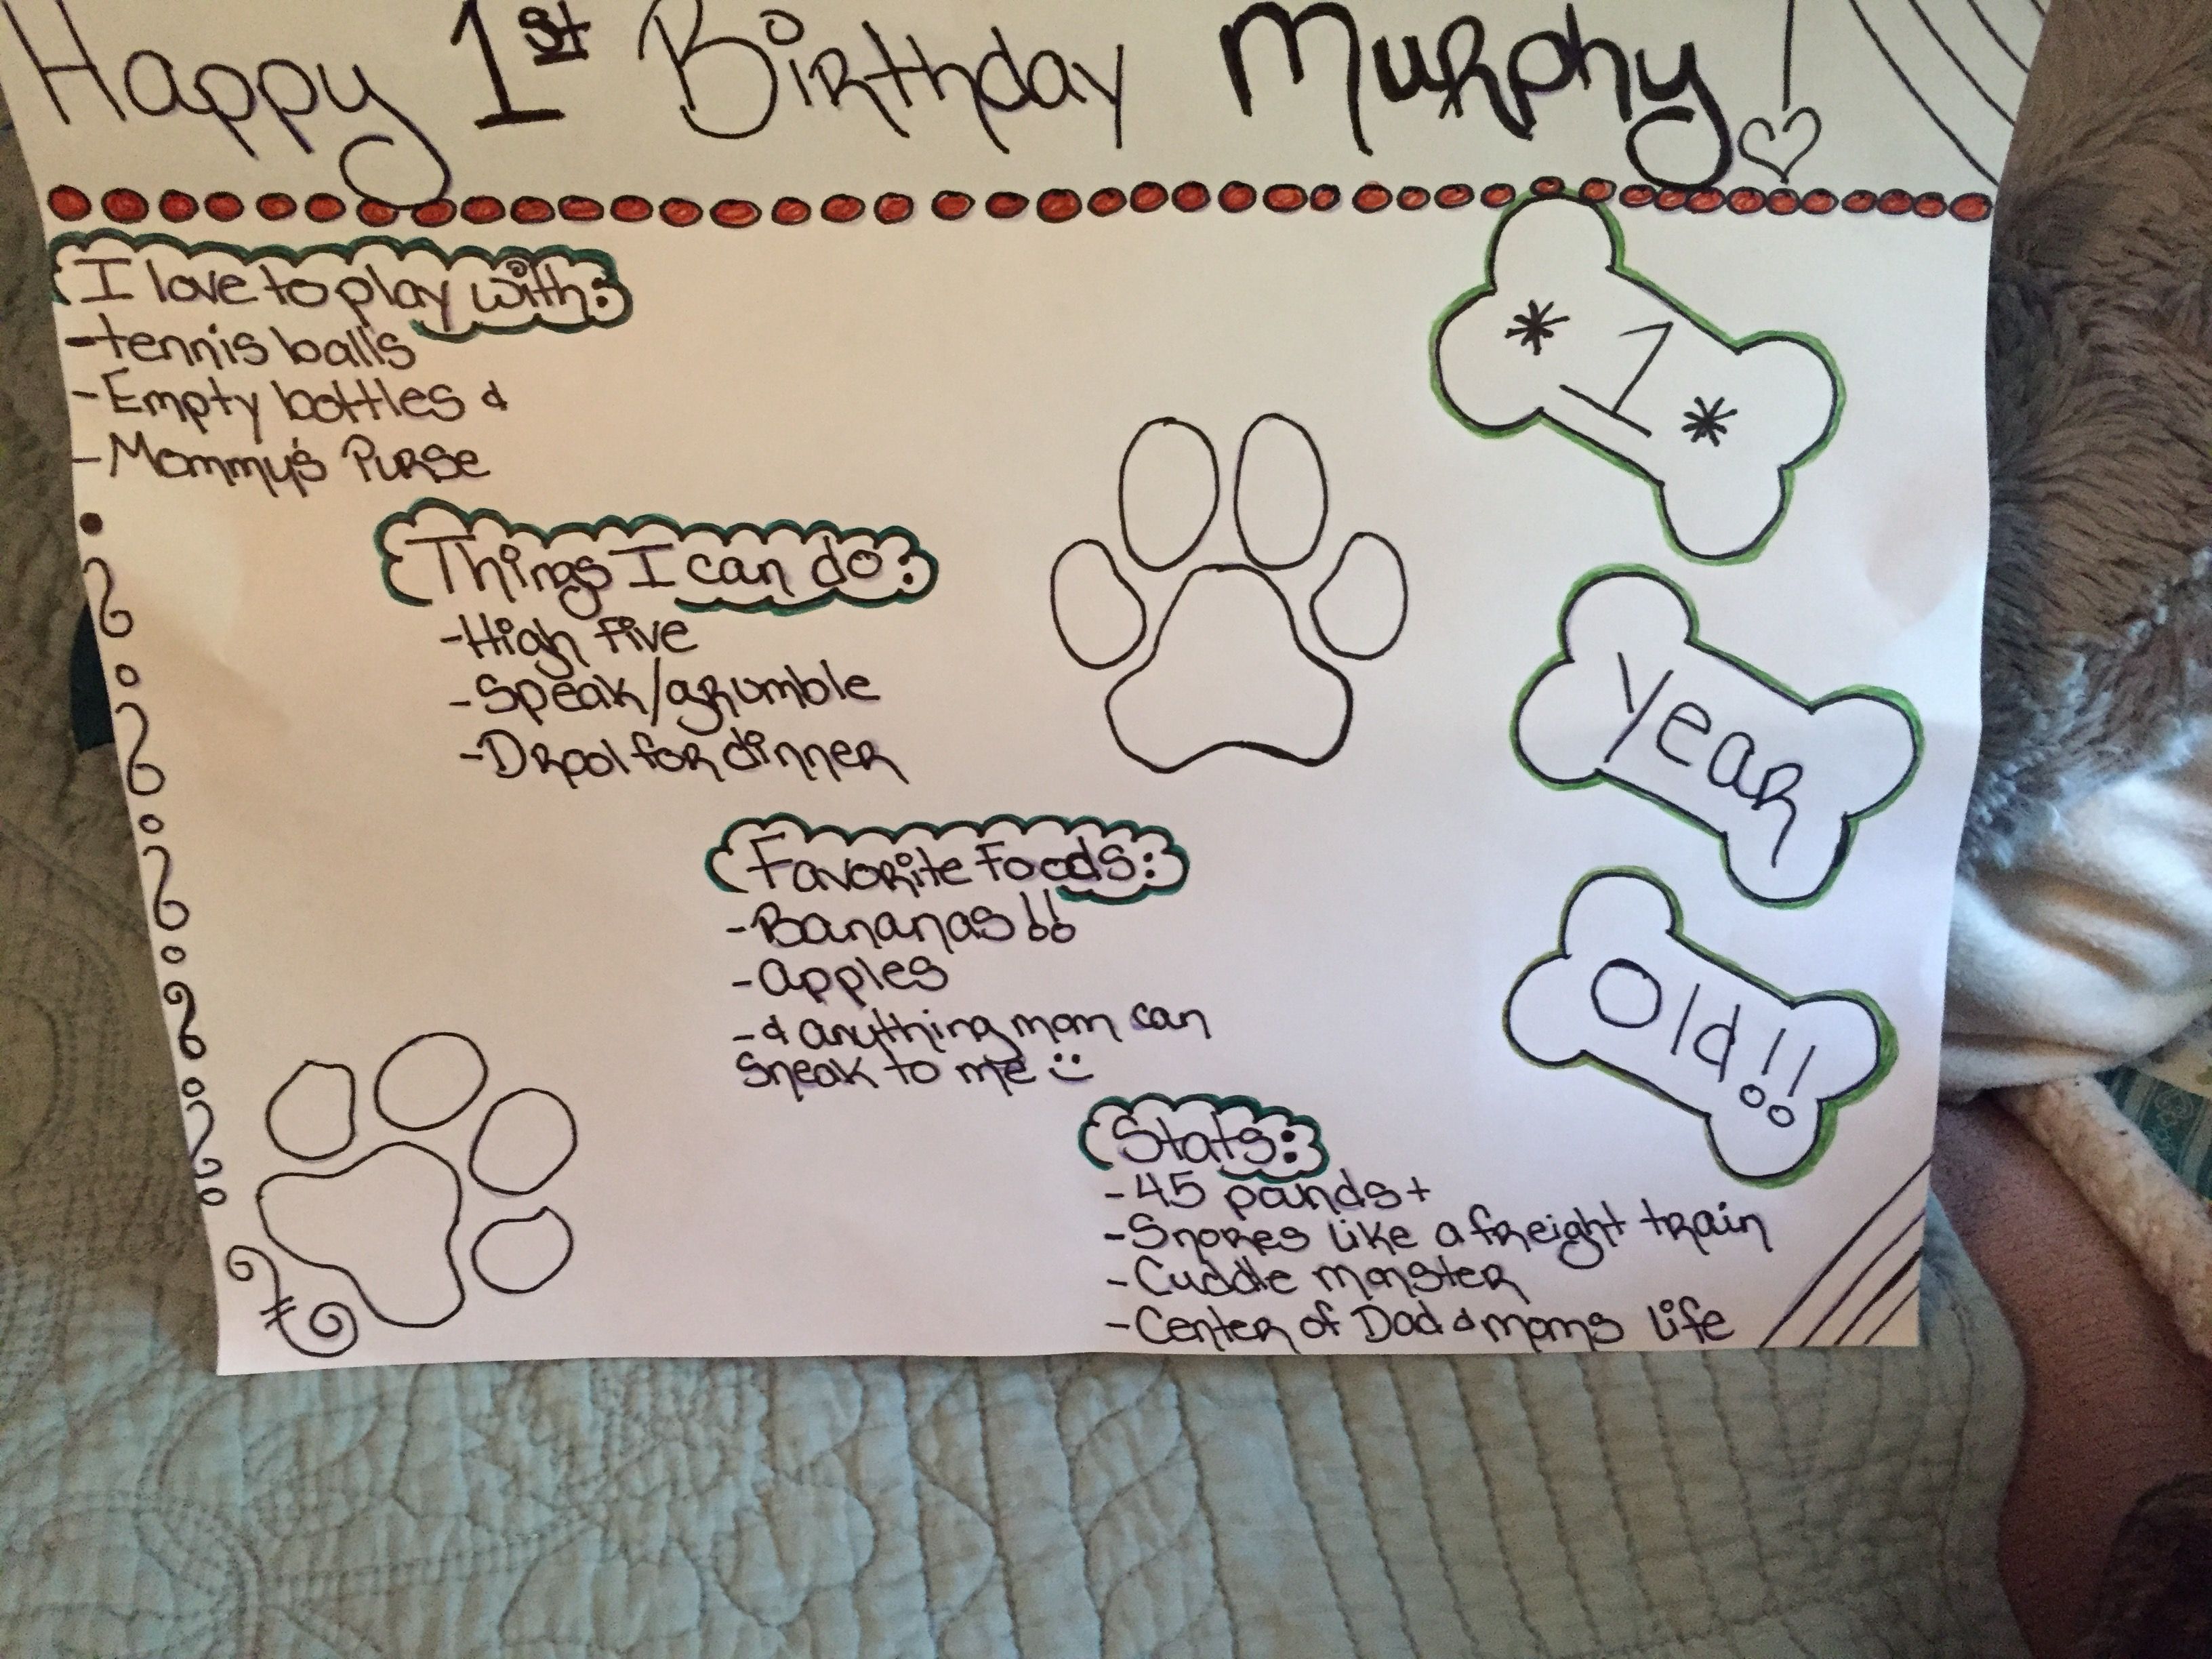 Happy 1st Birthday Murphy!
I love to play with:
-tennis balls
-Empty bottles &
-Mommy's Purse
Things I can do:
-High five
-Speak/grumble
-Drool for dinner
Favorite Foods:
-Bananas!!
-apples
-& anything mom can
sneak to me :)
Stats:
-45 pounds+
-Snores like a freight train
-Cuddle monster
-Center of Dad & moms life
* 1 *
year
Old!!